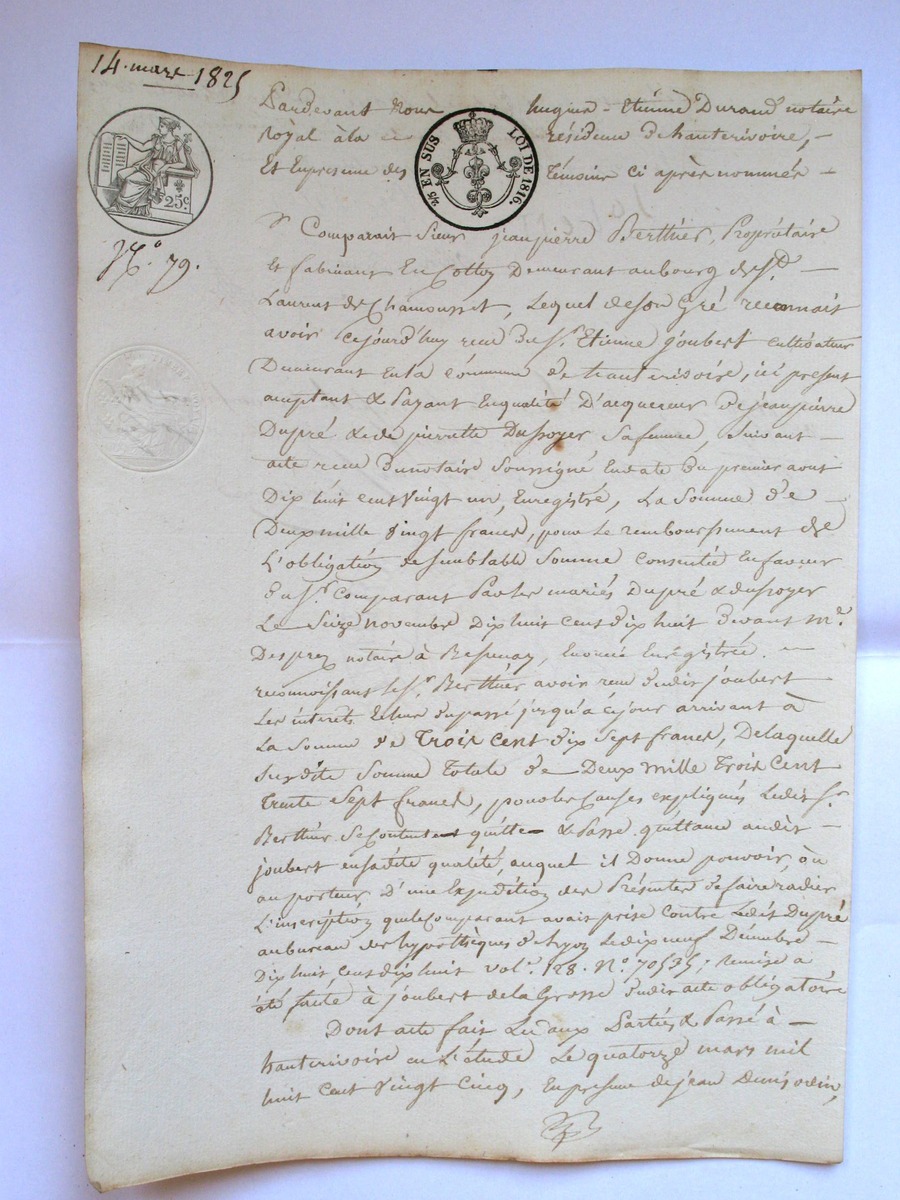 14. mars 1825
Pardevant Nous hugues-Etienne Durand notaire
Royal à la résidence de hauterivoire, -
Et En presence des Témoins ci après nommés -
25 EN SUS LOI DE 1816.
25 c.
No. 79.
Comparait Sieur jeanpierre Berthier, Propriétaire
Et fabricant En Cotton Demeurant aubourg de St.
Laurent de Chamousset, Lequel de son Gré reconnait
avoir cejourd'huy reçu De Sr. Etienne joubert cultivateur
Demeurant En la commune de hauterivoire, ici présent
acceptant & Payant En qualité D'acquereur de jeanpierre
Dupré & de pierrette Dussoyer Sa femme, Suivant -
acte reçu Du notaire Soussigné En date Du premier aout
Dix huit cent Vingt un, Enregistré, La Somme de -
Deux mille Vingt francs, pour Le remboursement de
L'obligation de semblable Somme Consentie En faveur
Du Sr. Comparant Par les mariés Dupré & Dussoyer
Le Seize novembre Dix huit cent dix huit devant Me.
Desprez notaire à Bessenay, Enregistrée. -
reconnoissant le Sr. Berthier avoir reçu dudit joubert
Les intérêts Echus du passé jusqu'à cejour arrivant à
La Somme de Trois Cent dix sept francs, De laquelle
Susdite Somme Totale de Deux Mille Trois Cent
Trente Sept francs, pour les Causes expliqués Ledit Sr.
Berthier Se Contente quitte & Passe quittance audit -
joubert en sadite qualité, auquel il Donne pouvoir, ou
au porteur D'une Expédition des Présentes de faire radier
L'inscription que le Comparant avait prise Contre Ledit Dupré
au bureau des hypothèques de Lyon Le dix neuf Décembre -
Dix huit cent dix huit vol. 128. No. 70535; remise a
été faite à joubert de la Grosse dudit acte obligatoire
Dont acte fait Lu aux Parties & Passé à -
hauterivoire en L'étude Le quatorze mars mil
huit Cent Vingt Cinq, En presence de jean Denis odin,